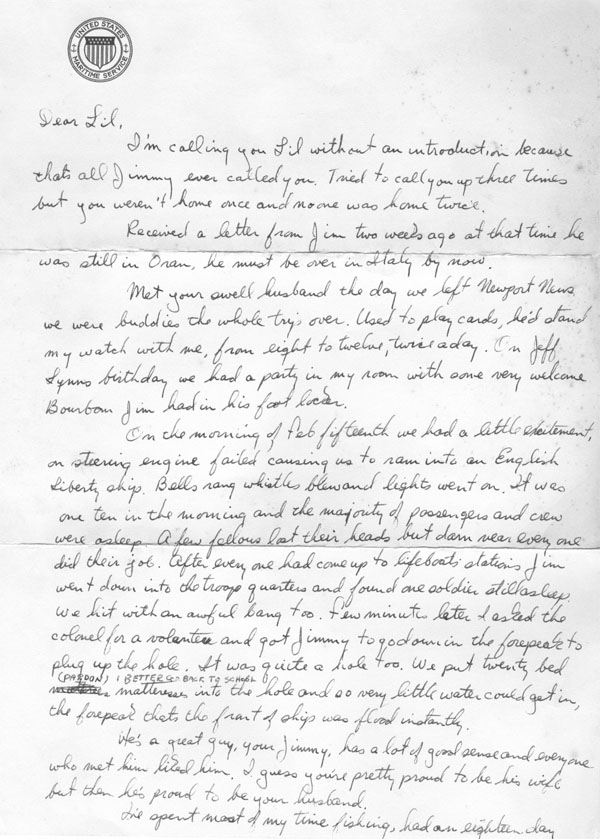 UNITED STATES
MARITIME SERVICE
Dear Lil,
I'm calling you Lil without an introduction because
thats all Jimmy ever called you. Tried to call you up three times
but you weren't home once and no one was home twice.
Received a letter from Jim two weeks ago at that time he
was still in Oran, he must be over in Italy by now.
Met your swell husband the day we left Newport News
we were buddies the whole trip over. Used to play cards, he'd stand
my watch with me, from eight to twelve, twice a day. On Jeff
Lynns birthday we had a party in my room with some very welcome
Bourbon Jim had in his foot locker.
On the morning of Feb fifteenth we had a little excitement,
on steering engine failed causing us to ram into an English
Liberty ship. Bells rang whistles blew and lights went on. It was
one ten in the morning and the majority of passengers and crew
were asleep. A few fellows lost their heads but darn near every one
did their job. After every one had come up to lifeboats stations Jim
went down into the troop quarters and found one soldier still asleep.
We hit with an awful bang too. Few minutes later I asked the
colonel for a volantee and got Jimmy to go down in the forepeak to
plug up the hole. It was quite a hole too. We put twenty bed
(PARDON) I BETTER GO BACK TO SCHOOL
mattresses into the hole and so very little water could get in,
the forepeak thats the front of ship was flood instantly.
He's a great guy, your Jimmy, has a lot of good sense and everyone
who met him liked him. I guess you're pretty proud to be his wife
but then he's proud to be your husband.
I've spent most of my time fishing, had an eighteen day